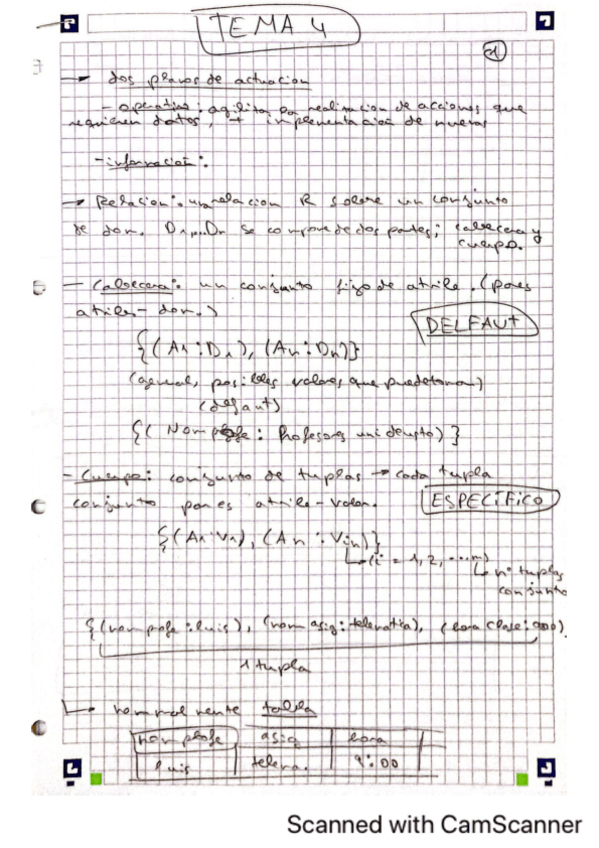 TEMA 4
1
→ dos planos de actuacion
- operativo: agilitar la realizacion de acciones que
requieren datos, + implementación de nuevas
- información:
→ Relacion: una relacion R sobre un conjunto
de dom. D1,...Dn se compone de dos partes; cabecera y
cuerpo.
- Cabecera: un conjunto fijo de atrib. (pares
atrib - dom.)
DELFAUT
{(A1:D1), (An:Dn)}
(general, posibles valores que puede tomar)
(defaut)
{( Nom profe: Profesores uni deusto) }
- Cuerpo: conjunto de tuplas → cada tupla
conjunto pares atrib - valor.
ESPECÍFICO
{(A1:V1), (An:Vin)}
(i = 1, 2, ...m)
nº tuplas
conjunto
{(nom profe: luis), (nom asig: telematica), (hora clase: 900)
1 tupla
normalmente tabla
nom profe asig hora
luis telema. 9:00
Scanned with CamScanner